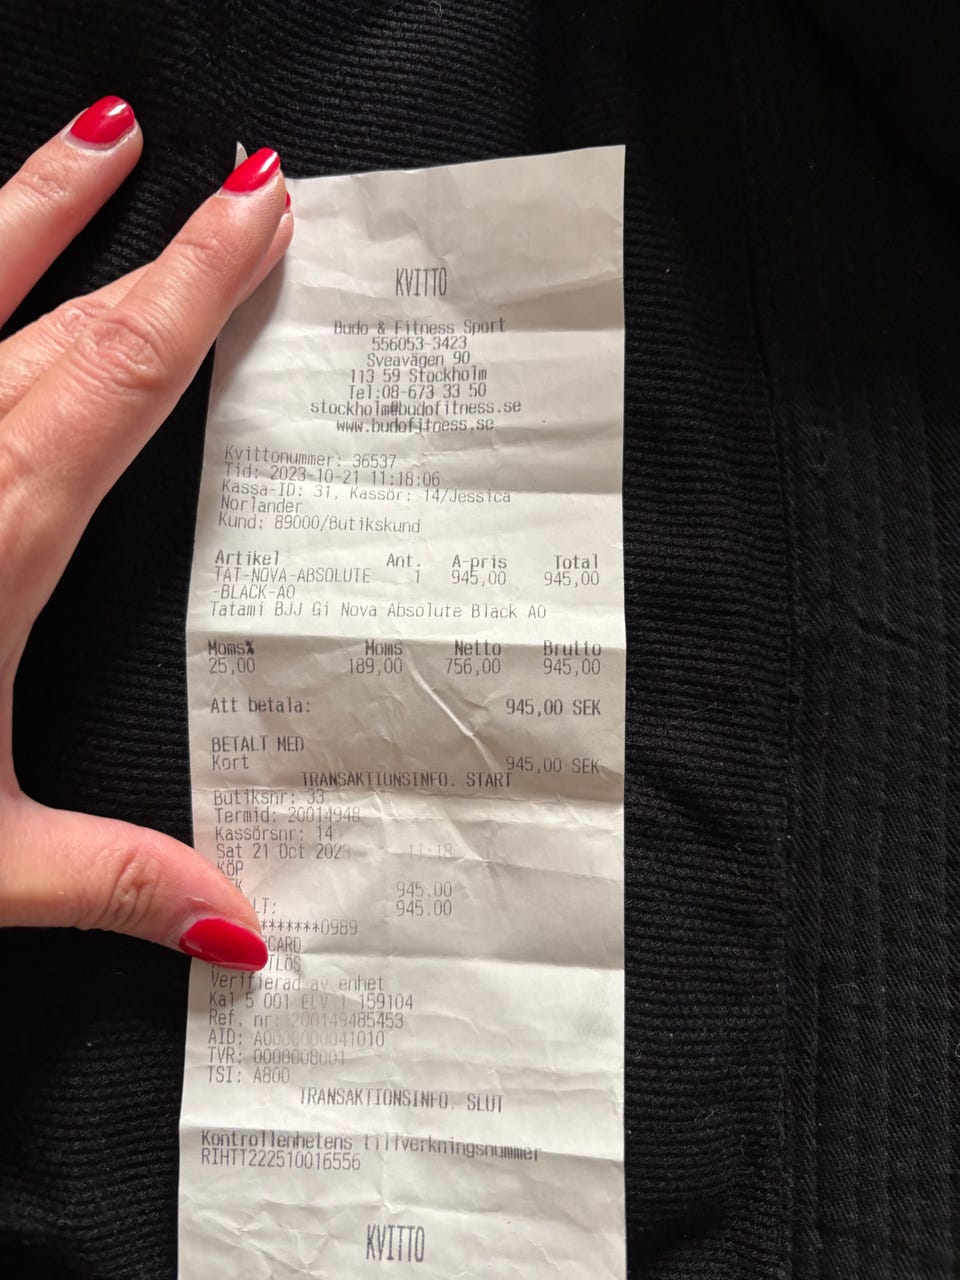 KVITTO
Budo & Fitness Sport
556053-3423
Sveavägen 90
113 59 Stockholm
Tel:08-673 33 50
stockholm@budofitness.se
www.budofitness.se
Kvittonummer: 36537
Tid: 2023-10-21 11:18:06
Kassa-ID: 31, Kassör: 14/Jessica
Norlander
Kund: 89000/Butikskund
Artikel Ant. A-pris Total
TAT-NOVA-ABSOLUTE 1 945,00 945,00
-BLACK-A0
Tatami BJJ Gi Nova Absolute Black A0
Moms% Moms Netto Brutto
25,00 189,00 756,00 945,00
Att betala: 945,00 SEK
BETALT MED
Kort 945,00 SEK
TRANSAKTIONSINFO. START
Butiksnr: 33
Termid: 20014948
Kassörsnr: 14
Sat 21 Oct 2023 11:18
KÖP
945.00
LT: 945.00
*******0989
CARD
TLÖS
Verifierad av enhet
Ka1 5 001 ELV 159104
Ref. nr: 200149485453
AID: A0000000041010
TVR: 0000008001
TSI: A800
TRANSAKTIONSINFO. SLUT
Kontrollenhetens tillverkningsnummer
RIHTT222510016556
KVITTO